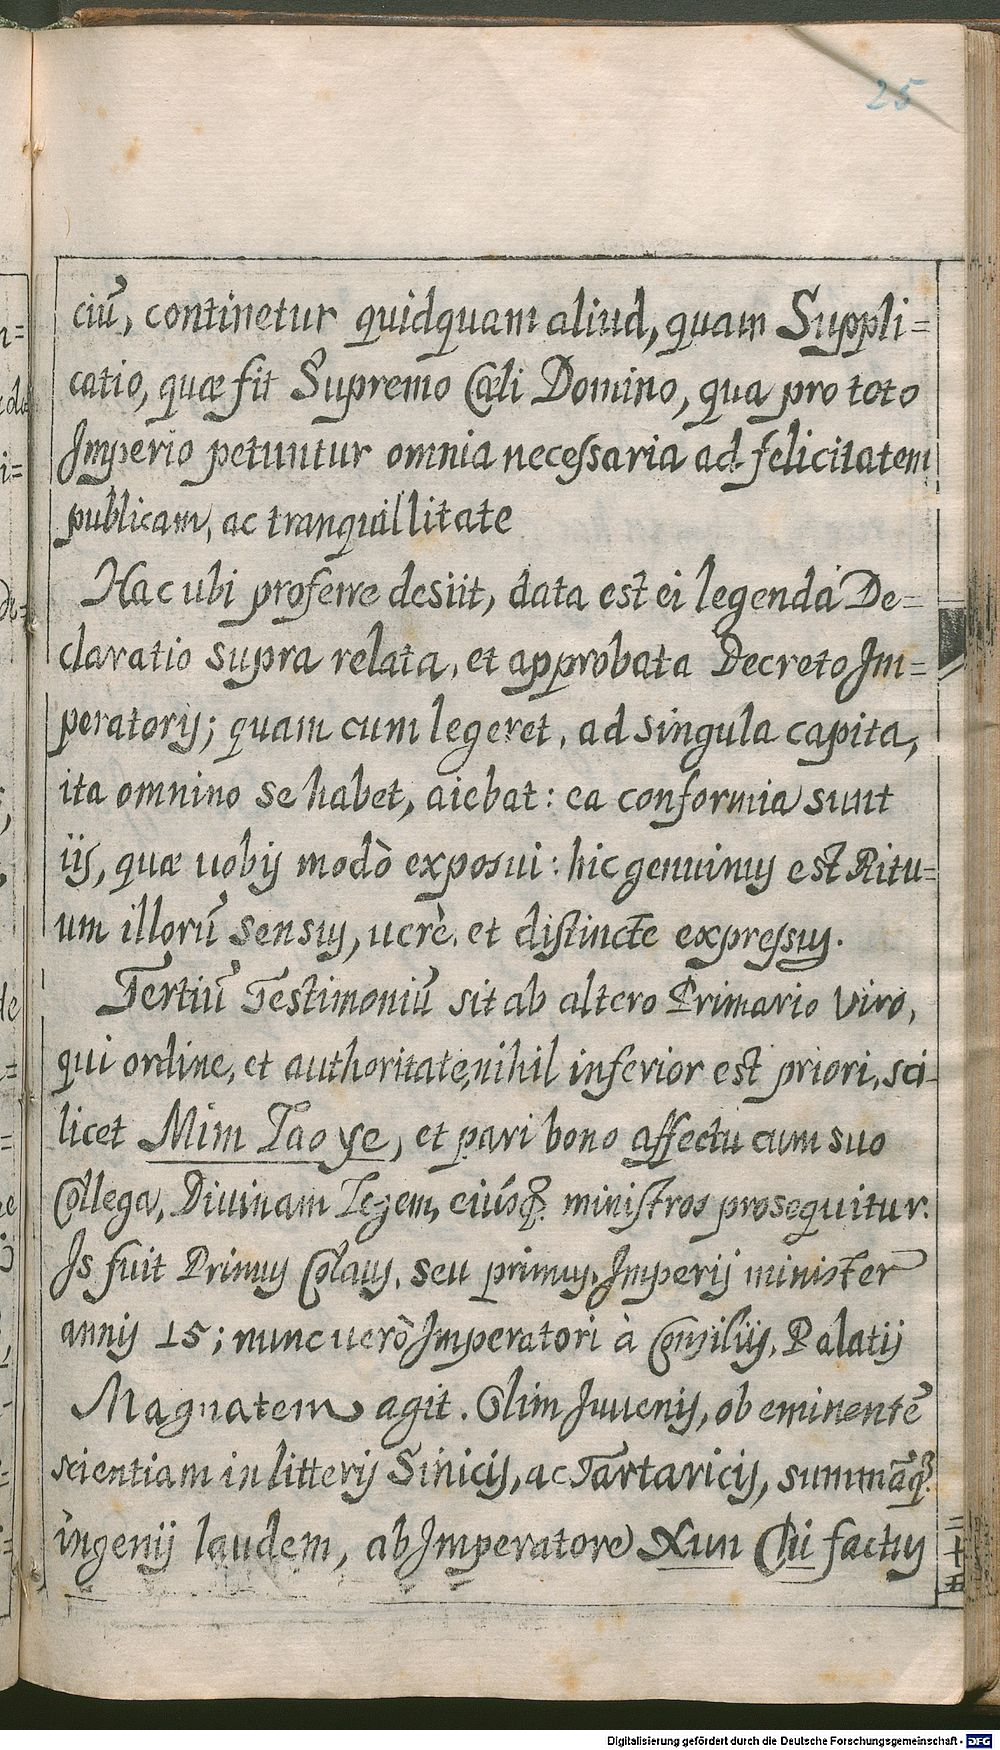 25
ciū, continetur quidquam aliud, quam Suppli=
catio, quæ fit Supremo Cœli Domino, qua pro toto
Imperio petuntur omnia necessaria ad felicitatem
publicam, ac tranquillitate
Hac ubi proferre desiit, data est ei legenda De=
claratio supra relata, et approbata Decreto Im=
peratoris; quam cum legeret, ad singula capita,
ita omnino se habet, aiebat: ea conformia sunt
iis, quæ vobis modò exposui: hic genuinus est Ritu=
um illorū sensus, verè, et distincte expressus.
Tertiū Testimoniū sit ab altero Primario Viro,
qui ordine, et authoritate, nihil inferior est priori, sci-
licet Mim Tao ye, et pari bono affectu cum suo
Collega, Divinam Legem, eiúsq. ministros prosequitur.
Is fuit Primus Colaus, seu primus Imperij minister
annis 15; nunc verò Imperatori à Consiliis, Palatij
Magnatem agit. Olim Juvenis, ob eminentē
scientiam in litteris Sinicis, ac Tartaricis, summāq.
ingenij laudem, ab Imperatore Xun Chi factus
二十五
Digitalisierung gefördert durch die Deutsche Forschungsgemeinschaft - DFG